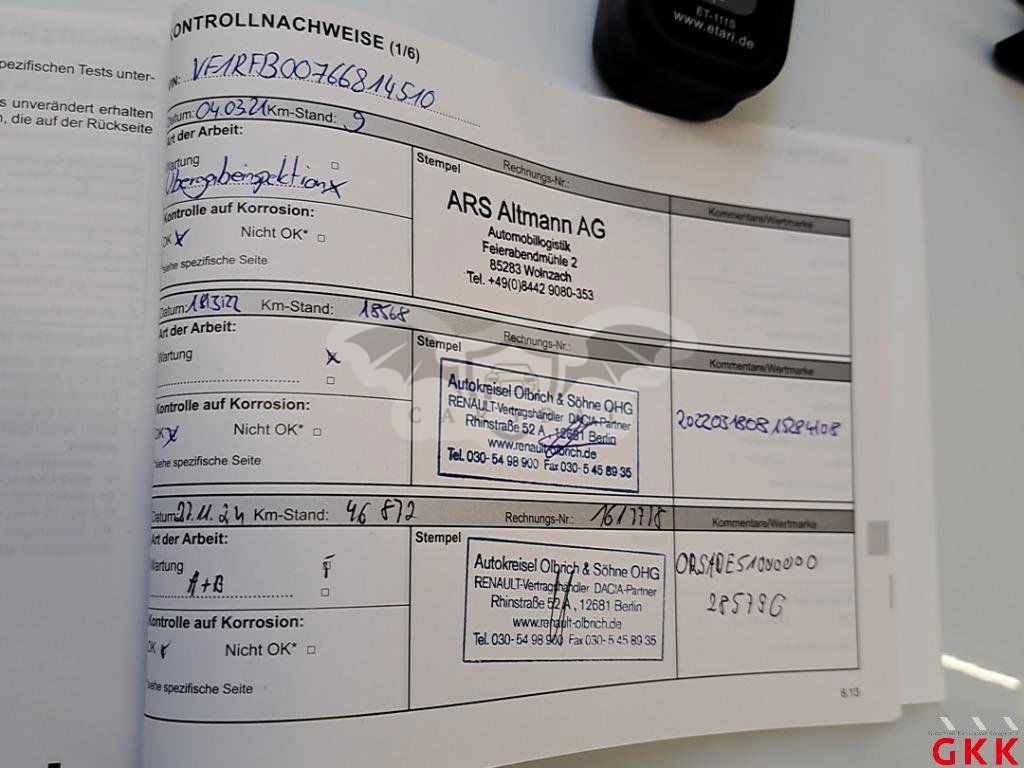 pezifischen Tests unter-
s unverändert erhalten
, die auf der Rückseite
ET-111S
www.etari.de
KONTROLLNACHWEISE (1/6)
VIN: VF1RFB00766814510
Datum: 04.03.21 Km-Stand: 9
Art der Arbeit:
Wartung
Übergabeinspektion x
Kontrolle auf Korrosion:
OK x Nicht OK* □
siehe spezifische Seite
Stempel Rechnungs-Nr.:
ARS Altmann AG
Automobillogistik
Feierabendmühle 2
85283 Wolnzach
Tel. +49(0)8442 9080-353
Kommentare/Wertmarke
Datum: 18.3.22 Km-Stand: 18568
Art der Arbeit:
Wartung x
Kontrolle auf Korrosion:
OK x Nicht OK* □
siehe spezifische Seite
Stempel Rechnungs-Nr.:
Autokreisel Olbrich & Söhne OHG
RENAULT-Vertragshändler DACIA-Partner
Rhinstraße 52 A, 12681 Berlin
www.renault-olbrich.de
Tel. 030- 54 98 900 Fax 030- 5 45 89 35
Kommentare/Wertmarke
202203180815284108
Datum: 27.11.24 Km-Stand: 46 872
Art der Arbeit:
Wartung
A+B
Kontrolle auf Korrosion:
OK Nicht OK* □
siehe spezifische Seite
Stempel Rechnungs-Nr.: 1617718
Autokreisel Olbrich & Söhne OHG
RENAULT-Vertragshändler DACIA-Partner
Rhinstraße 52 A, 12681 Berlin
www.renault-olbrich.de
Tel. 030- 54 98 900 Fax 030- 5 45 89 35
Kommentare/Wertmarke
28579G
6.13
GKK